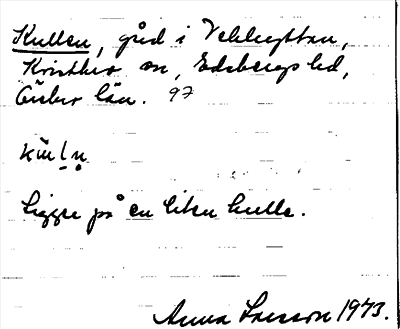 Kullen, gård i Vekhyttan,
Kvistbro sn, Edsbergs hd,
Örebro län. 97
Ligger på en liten kulle.
Anna Larsson 1973.